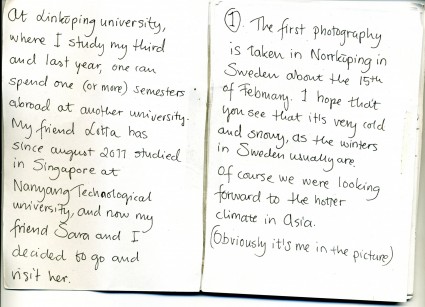 At Linköping university,
where I study my third
and last year, one can
spend one (or more) semesters
abroad at another university.
My friend Lotta has
since august 2011 studied
in Singapore at
Nanyang Technological
university, and now my
friend Sara and I
decided to go and
visit her.
①. The first photography
is taken in Norrköping in
Sweden about the 15th
of February. I hope that
you see that it's very cold
and snowy, as the winters
in Sweden usually are.
Of course we were looking
forward to the hotter
climate in Asia.
(Obviously it's me in the picture)